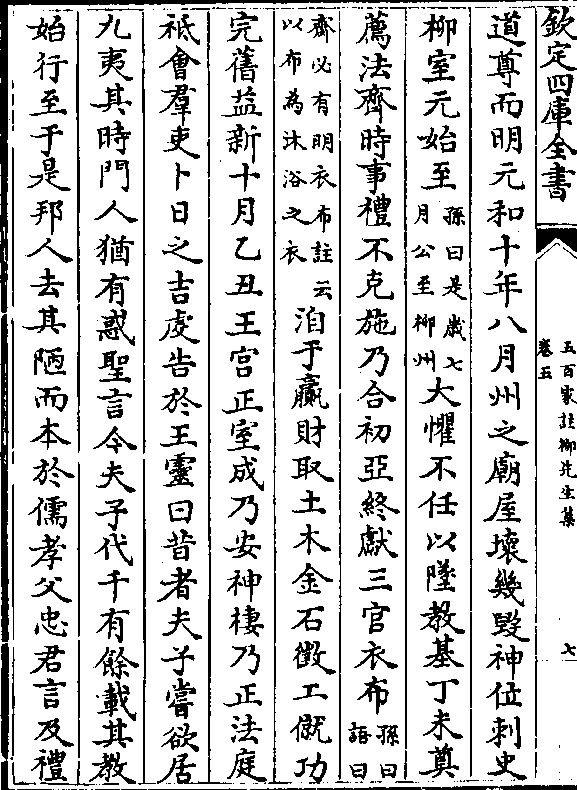 欽定四庫全書
五百家註柳先生集
卷五
七
道尊而明元和十年八月州之廟屋壞幾毀神位刺史
柳室元始至孫曰是歲七月公至柳州大懼不任以墜教基丁未奠
薦法齊時事禮不克施乃合初亞終獻三官衣布孫曰語曰
齊必有明衣布註云以布為沐浴之衣洎于羸財取土木金石徵工僦功
完舊益新十月乙丑王宫正室成乃安神棲乃正法庭
祗會羣吏卜日之吉䖍告於王靈曰昔者夫子嘗欲居
九夷其時門人猶有惑聖言今夫子代千有餘載其教
始行至于是邦人去其陋而本於儒孝父忠君言及禮